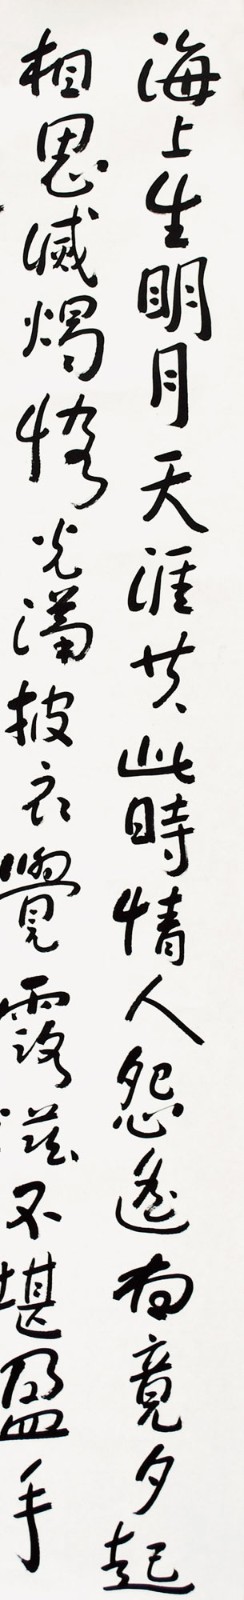 海上生明月天涯共此時情人怨遙夜竟夕起
相思滅燭憐光滿披衣覺露滋不堪盈手